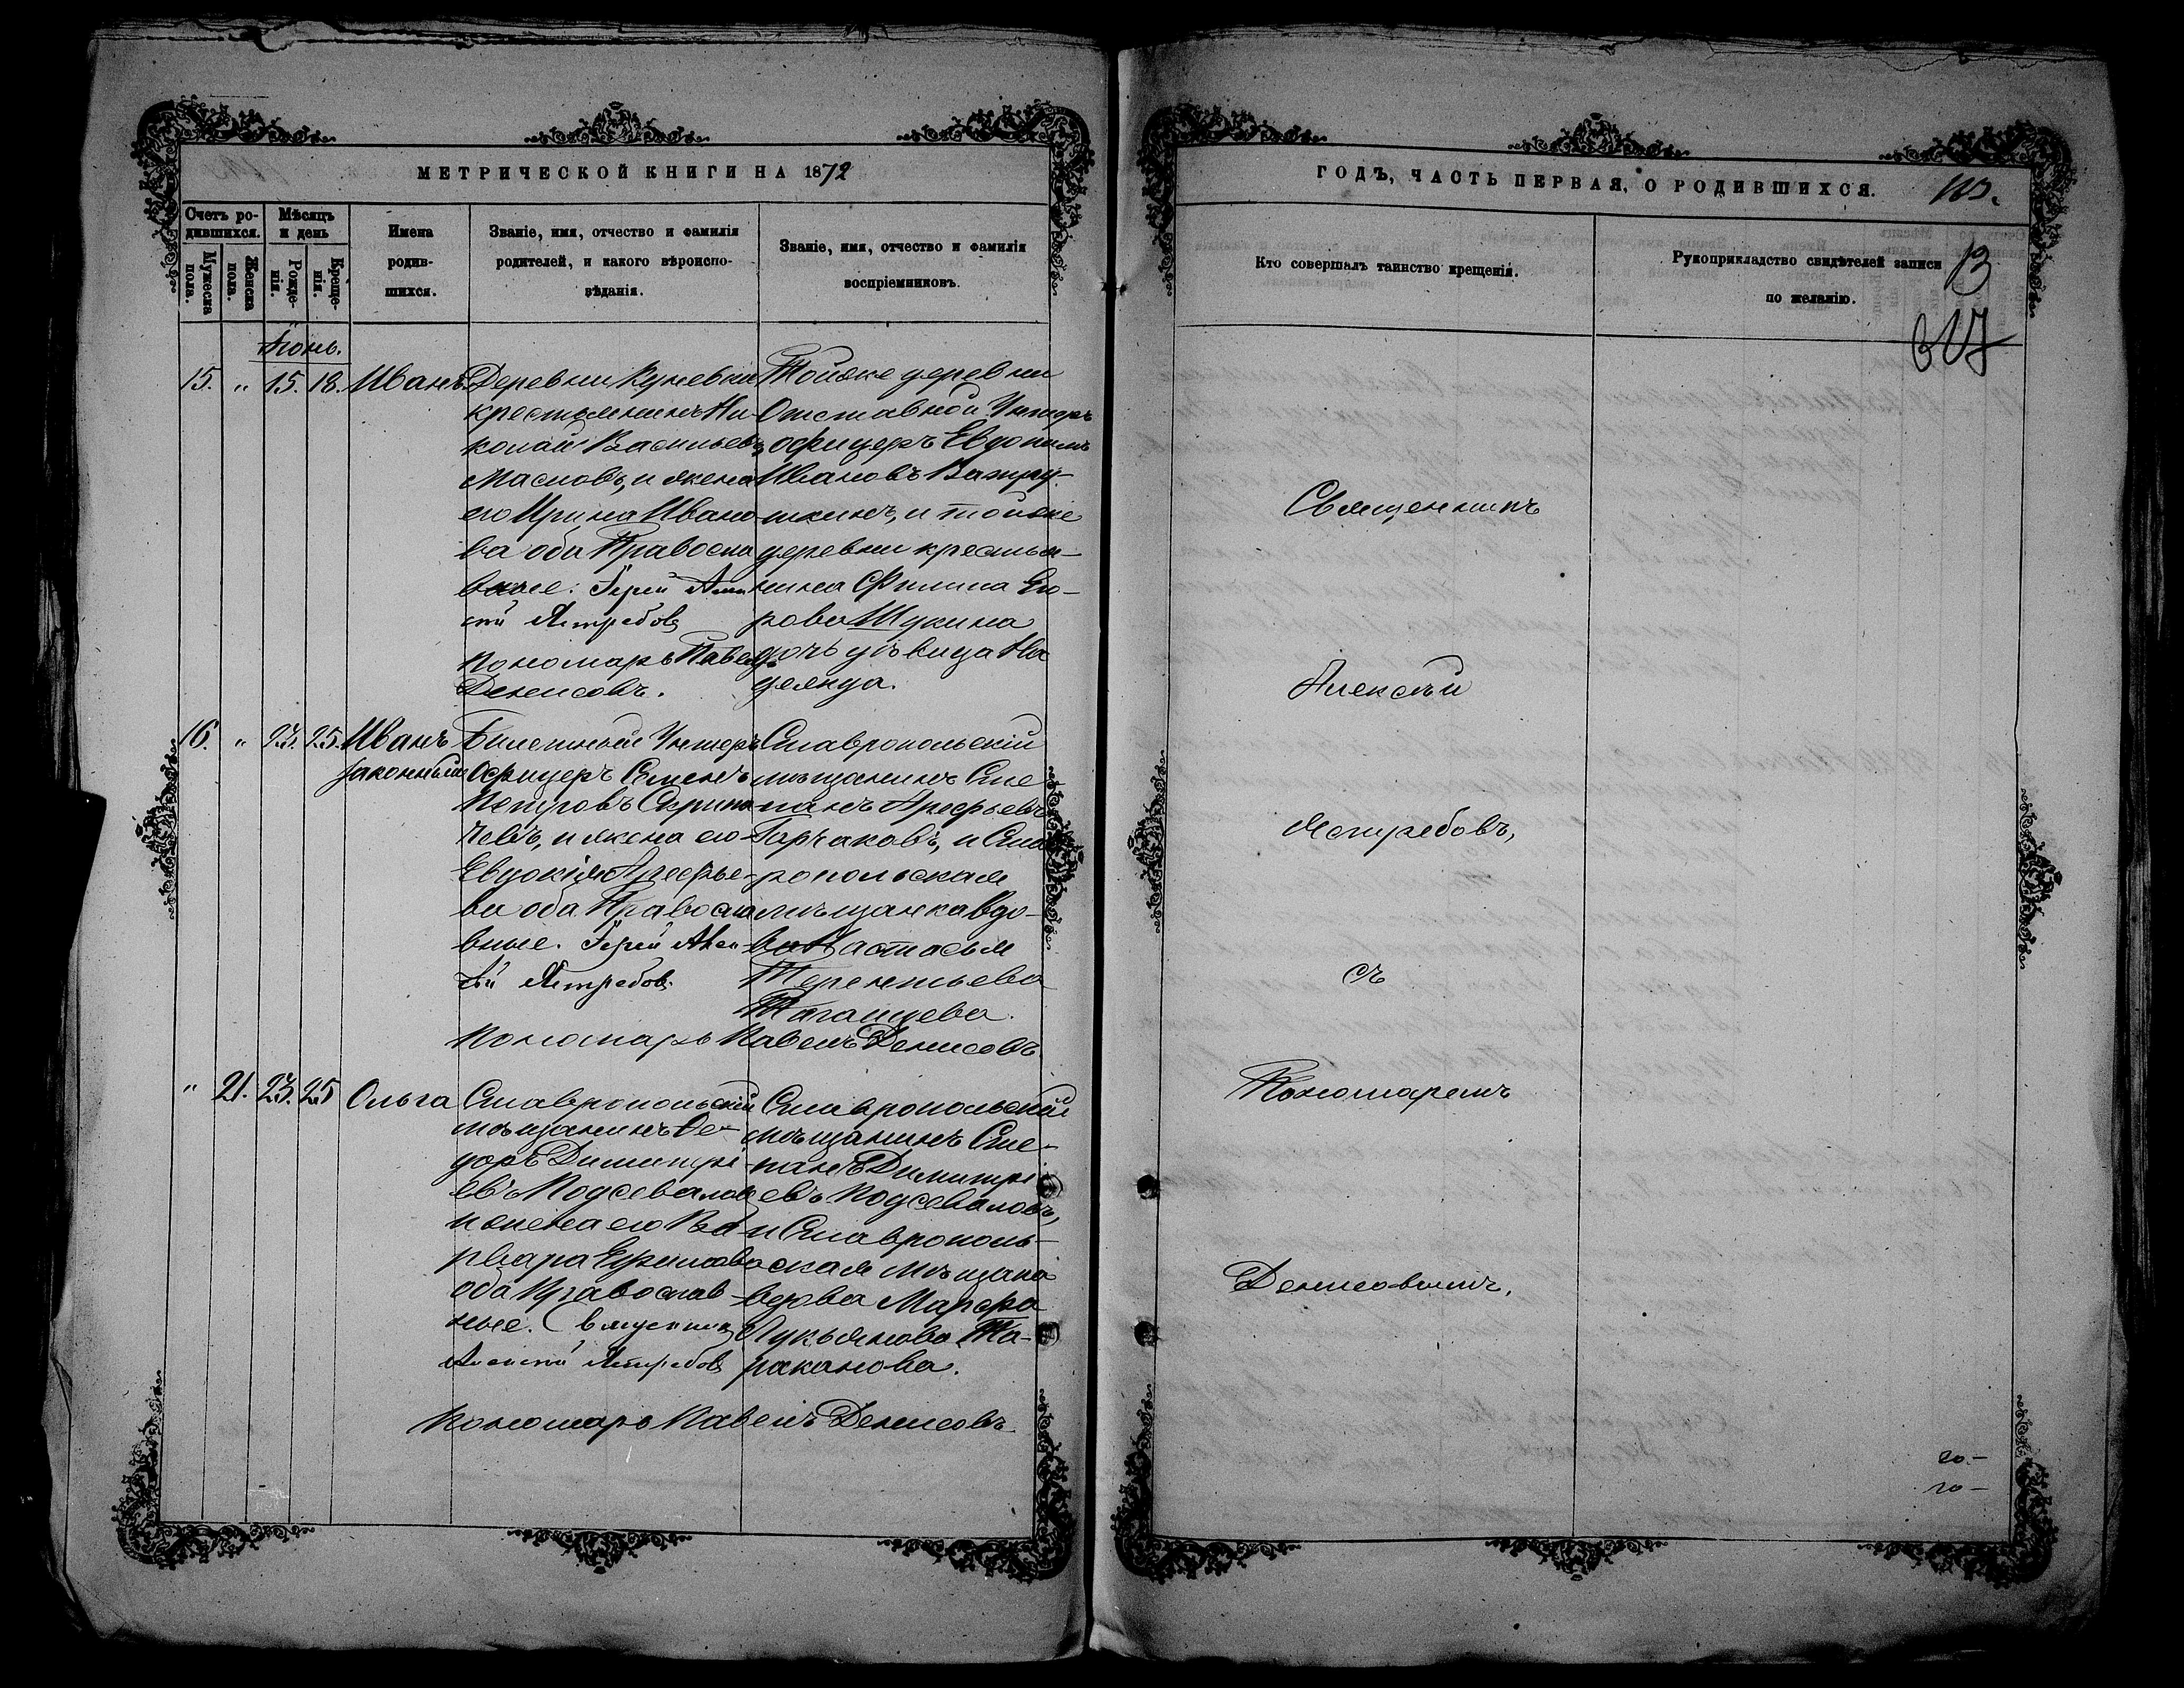 МЕТРИЧЕСКОЙ КНИГИ НА 1872
Счетъ ро-
дившихся.
Мѣсяцъ
и день
Мужеска
пола.
Женска
пола.
Рожде-
нія.
Креще-
нія.
Имена
родив-
шихся.
Званіе, имя, отчество и фамилія
родителей, и какого вѣроиспо-
вѣданія.
Званіе, имя, отчество и фамилія
воспріемниковъ.
Іюнь.
15. " 15. 18. Иванъ
Деревни Куневки
крестьянинъ Ни-
колай Васильевъ
Масловъ, и жена
его Ирина Ивано
ва оба Правосла
вные. Іерей Алек
сѣй Ястребовъ
Пономарь Павелъ
Денисовъ.
Тойже деревни
Отставной Унтеръ
офицеръ Евдокимъ
Ивановъ Вахру-
шкинъ, и тойже
деревни крестья-
нина Филипа Его-
рова Щукина
дочь дѣвица На
дежда.
16. " 23. 25. Иванъ
законный
Билетный Унтеръ
Офицеръ Семенъ
Петровъ Скрипа
чевъ, и жена его
Евдокія Арефье-
ва оба Правосла
вные. Іерей Алек
сѣй Ястребовъ
Ставропольскій
мѣщанинъ Сте
панъ Арефьевъ
Горчаковъ, и Став
ропольская
мѣщанка вдо-
ва Настасья
Терентьева
Таганцева.
Пономарь Павелъ Денисовъ.
" 21. 23. 25 Ольга
Ставропольскій
мѣщанинъ Ѳе-
доръ Димитрі-
евъ Подсеваловъ
и жена его Ва
рвара Ефимова
оба Православ-
ные. Священникъ
Алексѣй Ястребовъ
Ставропольскій
мѣщанинъ Сте-
панъ Димитрі
евъ Подсеваловъ,
и Ставрополь-
ская мѣщанка
вдова Марфа
Лукьянова Та-
раканова.
Пономарь Павелъ Денисовъ.
ГОДЪ, ЧАСТЬ ПЕРВАЯ, О РОДИВШИХСЯ.
Кто совершалъ таинство крещенія.
Рукоприкладство свидѣтелей записи
по желанію.
Священникъ
Алексѣй
Ястребовъ,
съ
Пономаремъ
Денисовымъ.